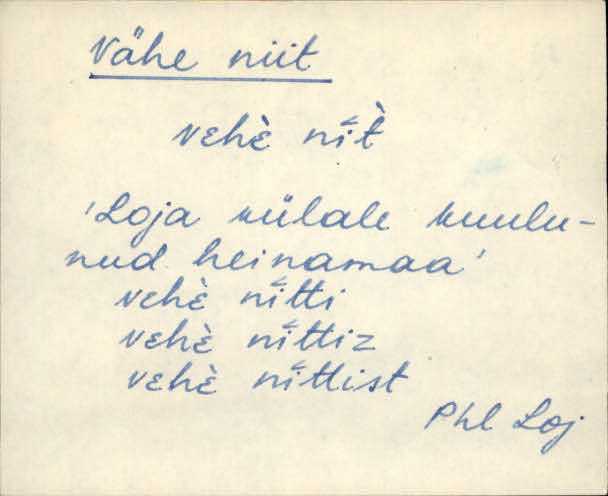 Vähe niit
vεhὲ nī̆t̀
'Loja külale kuulu-
nud heinamaa'
vεhὲ nī̆tti
vεhὲ nī̆ttiz
vεhὲ nī̆ttist
Phl Loj